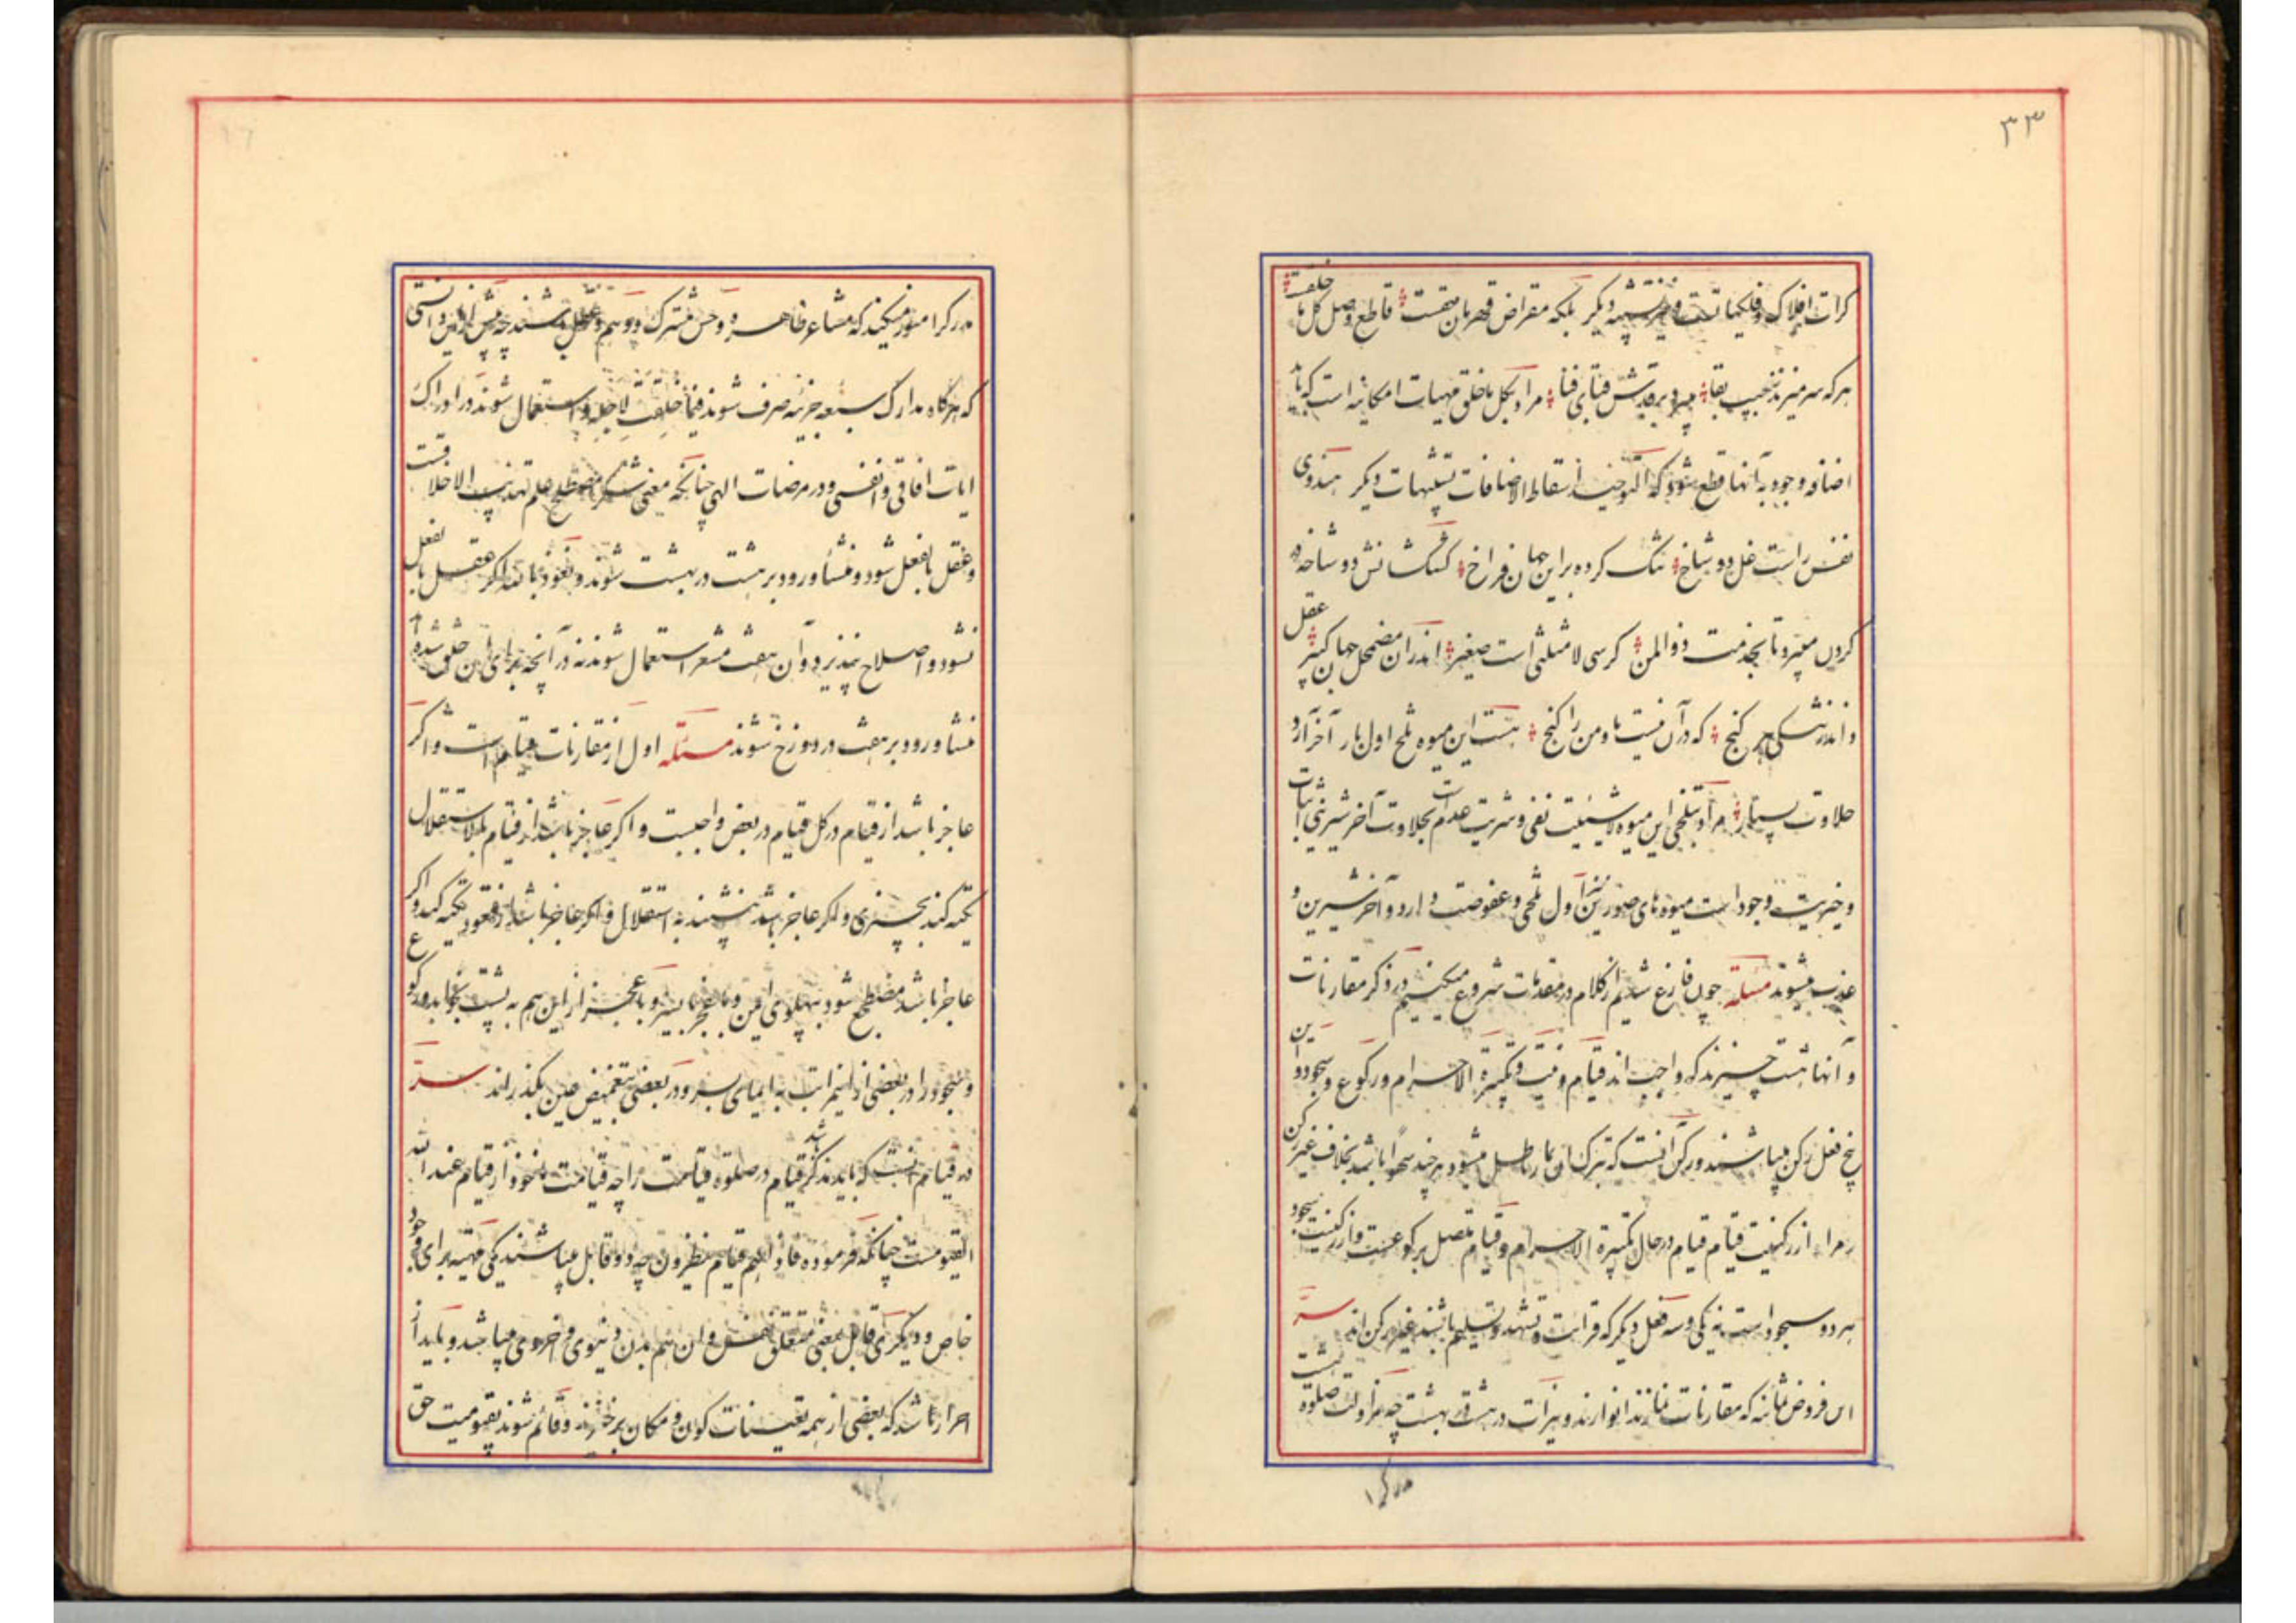 ۳۳
کرات افلاک و فلکیاتست و نیز تشبیه دیگر بلکه مقراض قهرمان حقست قاطع وصل کل با خلقت
هر که سر میزند بجیب بقا میبرد بر قدش قبای فنا مراد بکل ما خلق مهیات امکانیه است که باید
اضافه وجود به آنها قطع شود که التوحید اسقاط الاضافات تشبیهات دیگر هندوی
نفس راست غل دو شاخ تنک کرده برو جهان فراخ کشکشانش دو شاخه در
کردن میبرد تا بخدمت ذو المن کرسی لا مثلثی است صغیر اندران مضمحل جهان کبیر عقل
و اندرتنکی هر کنج که در آن نیست ما و من را کنج هست این میوه تلخ اول بار آخر آرد
حلاوت بسیار مراد بتلخی این میوه لا شیئیت نفی و شریت عدم است بحلاوت آخر شیرینی اثبات
و خیریت وجود است میوه های صوری نیز اول تلخی و عفوصت دارد و آخر شیرین و
عذب میشوند مسئله چون فارغ شدیم از کلام در مقدمات شروع میکنیم در ذکر مقارنات
و آنها هشت چیزند که واجب اند قیام و نیت و تکبیرة الاحرام و رکوع و سجود و این
پنج فعل رکن میباشند و رکن آنست که بترک آن نماز باطل میشود هر چند سهوا باشد بخلاف غیر رکن
و مراد از رکنیت قیام قیام در حال تکبیرة الاحرام و قیام متصل برکوعست و از رکنیت سجود
هر دو سجود است نه یکی و سه فعل دیگر که قرائت و تشهد و تسلیم باشند غیر رکن اند سر
این فروض ثمانیه که مقارنات نمازند انوارند و نیرات در هشت بهشت چه مزاولت صلوة هشت
مدرک را
مدرک را منور میکنند که مشاعر ظاهره و حس مشترک و وهم و عقل باشند چه پیش از این دانستی
که هر گاه مدارک سبعه جزئیه صرف شوند فیما خلقت لاجله و استعمال شوند در ادراک
ایات افاقی و انفسی و در مرضات الهی چنانکه معنی شکر مصطلح علم تهذیب الاخلاقست
و عقل بالفعل شود منشأ ورود بر هشت در بهشت شوند و نعوذ بالله اگر عقل بالفعل
نشود و اصلاح نپذیرد و آن هفت مشعر استعمال شوند نه در آنچه برای آن خلق شده اند
منشأ ورود بر هفت در دوزخ شوند مسئله اول از مقارنات قیام است و اگر
عاجز باشد از قیام در کل قیام در بعض واجبست و اگر عاجز باشد از قیام بلا استقلال
تکیه کند بچیزی و اگر عاجز باشد بنشیند به استقلال و اگر عاجز باشد از قعود تکیه کند و اگر
عاجز باشد مضطجع شود به پهلوی ایمن و با عجز بایسر و با عجز از این هم به پشت بخوابد و رکوع
و سجود را در بعضی از این مراتب به ایمای بسر و در بعضی بتغمیض عین بگذراند سر
در قیام آنست که باید مذکر باشد قیام در صلوة قیامت را چه قیامت ماخوذ از قیام عند الله
القیومست چنانکه فرموده فاذا هم قیام ینظرون چه دو قابل میباشند یکی مهیته برای وجود
خاص و دیگری قابل بمعنی متعلق نفس و ان هم بدن دنیوی و اخروی میباشد و باید از
احرار باشد که بعضی از همه تعینات کون و مکان برخیزند و قائم شوند بقیومیت حق